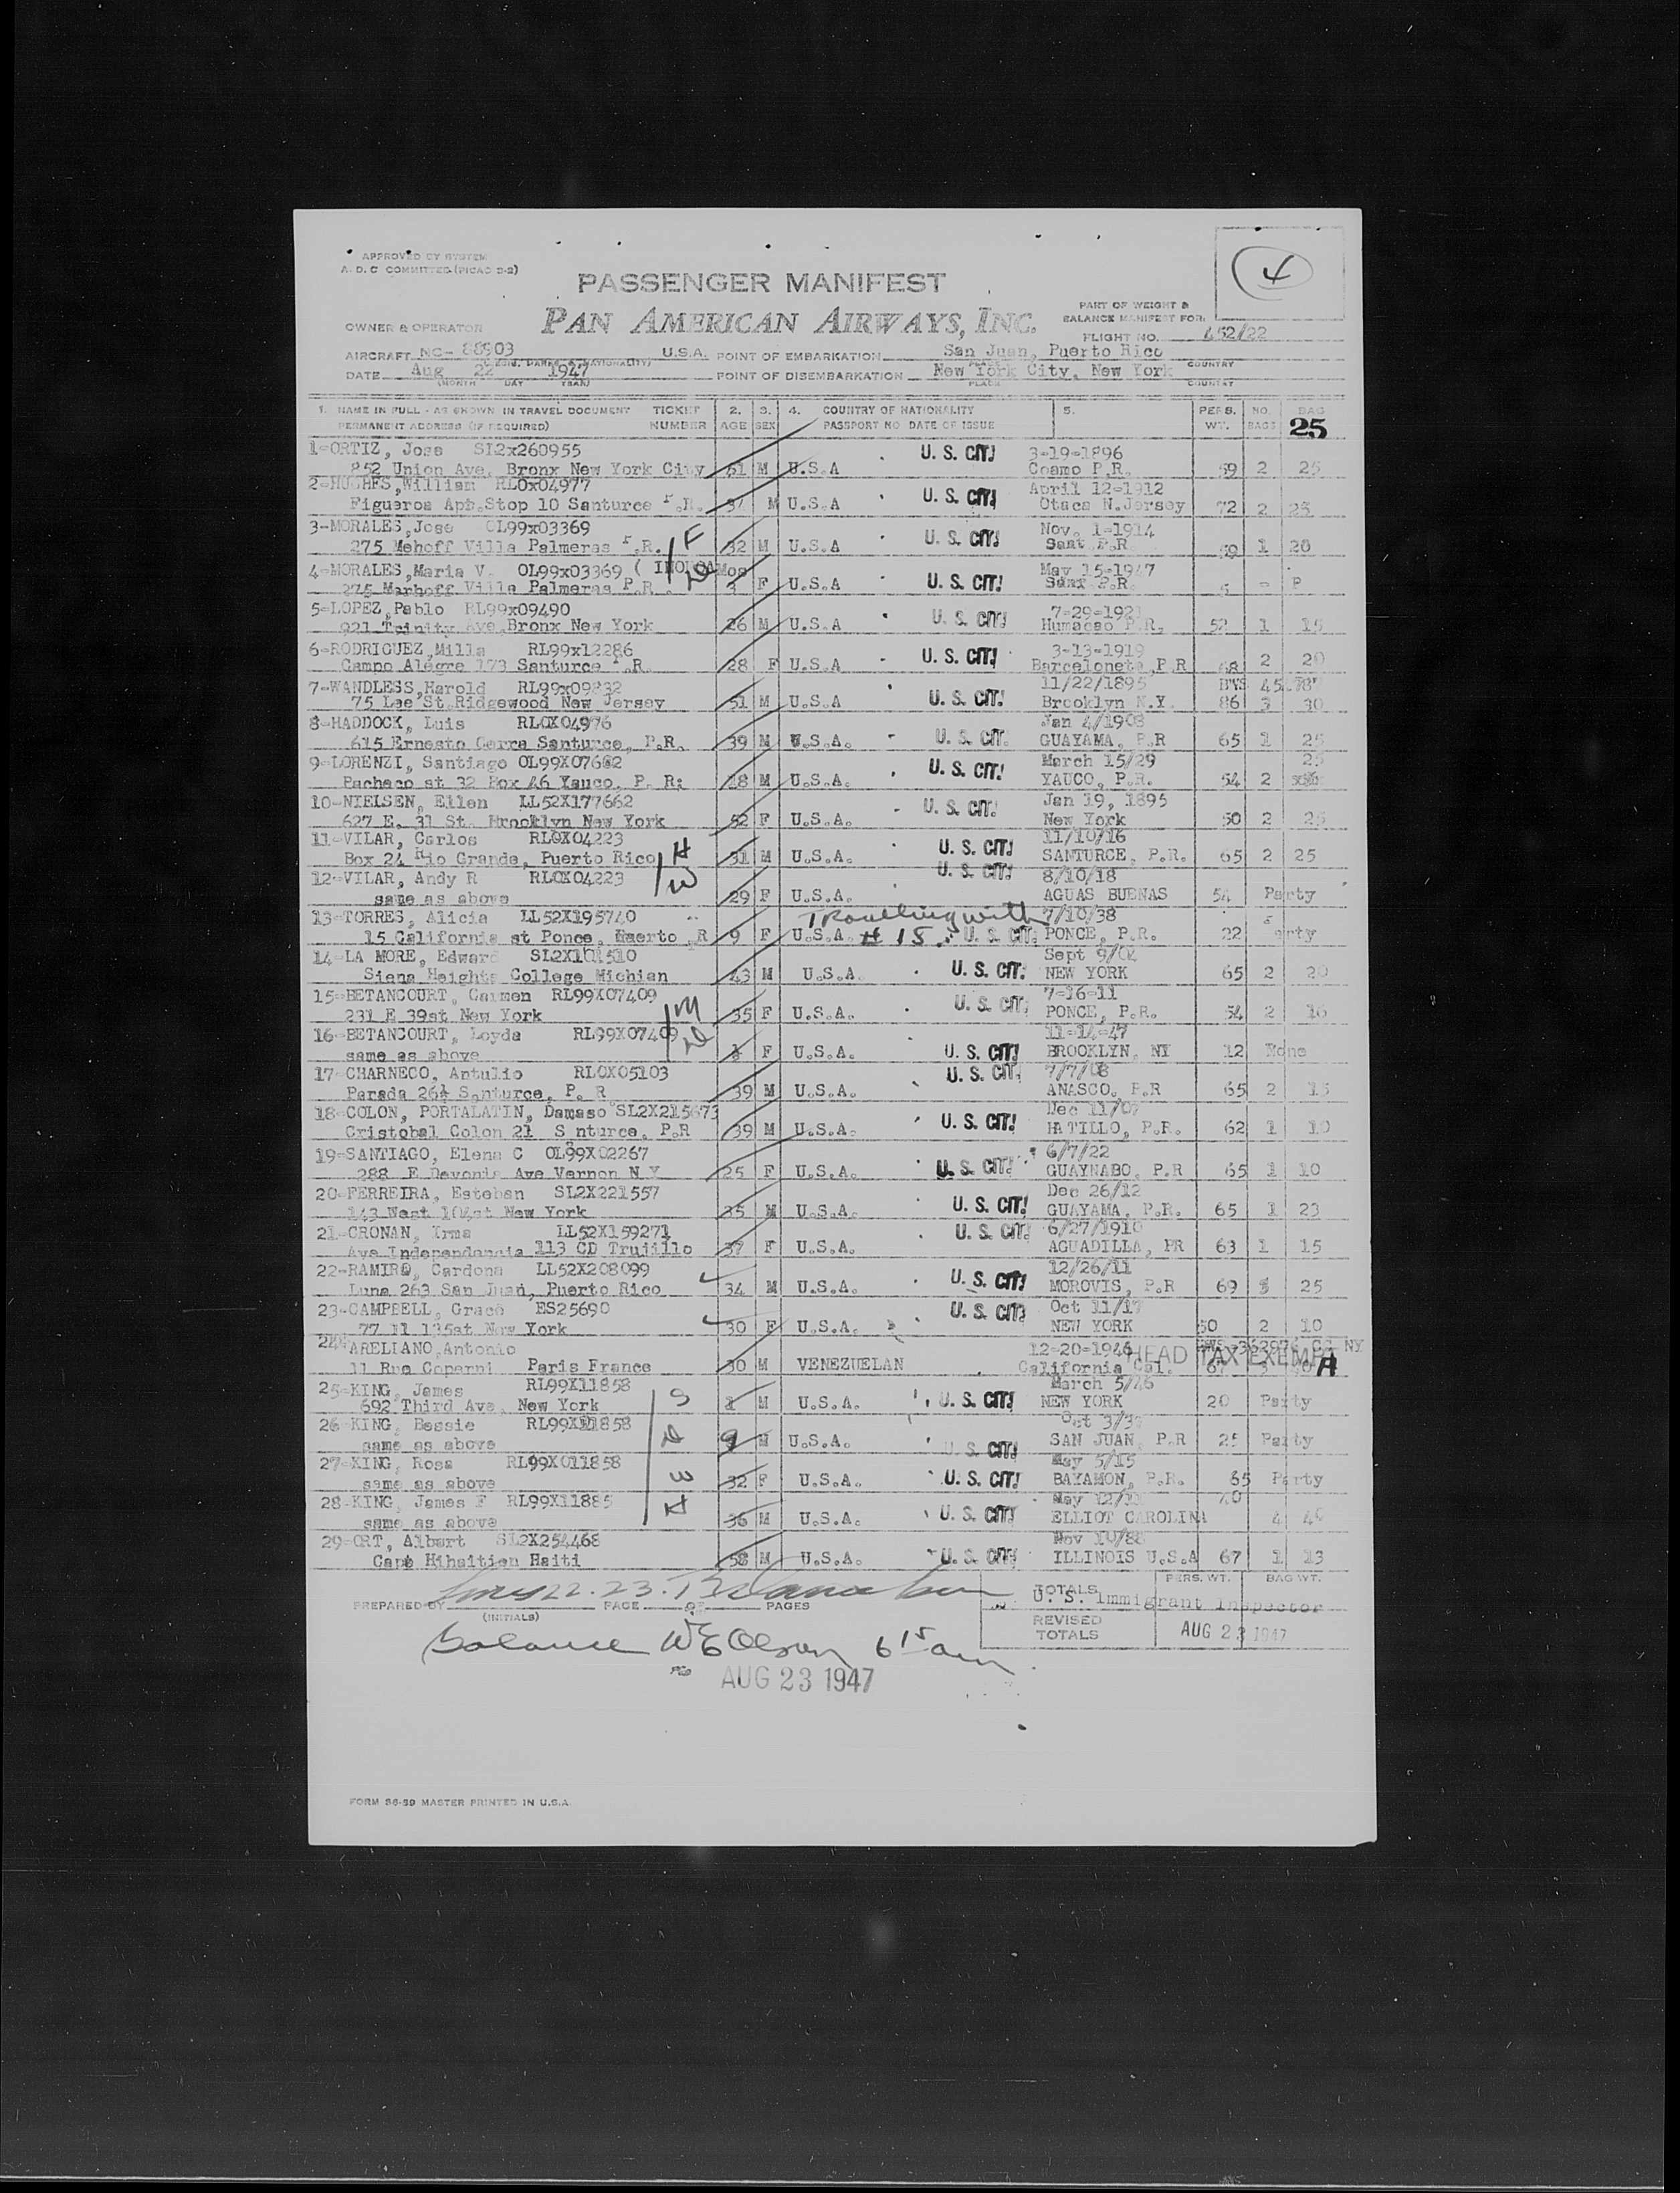 APPROVED BY SYSTEM
A. D. C COMMITTEE (PICAO 2-2)
4
PASSENGER MANIFEST
PART OF WEIGHT &
BALANCE MANIFEST FOR:
OWNER & OPERATOR PAN AMERICAN AIRWAYS, INC.
FLIGHT NO. 452/22
AIRCRAFT NC- 88903 U.S.A. POINT OF EMBARKATION San Juan, Puerto Rico
DATE Aug 22 1947 POINT OF DISEMBARKATION New York City, New York
(MONTH DAY YEAR) PLACE COUNTRY
1. NAME IN FULL - AS SHOWN IN TRAVEL DOCUMENT TICKET 2. 3. 4. COUNTRY OF NATIONALITY 5. PERS. NO. BAG
PERMANENT ADDRESS (IF REQUIRED) NUMBER AGE SEX PASSPORT NO DATE OF ISSUE WT. BAGS 25
1-ORTIZ, Jose SL2x260955 U. S. CIT. 3-19-1896
852 Union Ave, Bronx New York City 51 M U.S.A Coamo P.R. 2 25
2-HUGHES,William RLOx04977 U. S. CIT. April 12-1912
Figueroa Apt.Stop 10 Santurce P.R. M U.S.A N.Jersey 72 2 25
3-MORALES,Jose OL99x03369 U. S. CIT. Nov. 1-1914
275 Mehoff Villa Palmeras P.R. F 32 M U.S.A Sant P.R 1 20
4-MORALES,Maria V. OL99x03369 Mos May 15-1947
275 Marhoff Villa Palmeras P.R. D 3 F U.S.A U. S. CIT. P.R. P
5-LOPEZ,Pablo RL99x09490 U. S. CIT.
921 Trinity Ave,Bronx New York 26 M U.S.A Humacao P.R. 52 1 15
6-RODRIGUEZ,Milla RL99x12286 U. S. CIT. 3-13-1919
Campo Alegre 173 Santurce P.R. 28 F U.S.A Barceloneta,P.R 2 20
7-WANDLESS,Harold RL99x09832 11/22/1895
75 Lee St.Ridgewood New Jersey 51 M U.S.A U. S. CIT. Brooklyn N.Y. 86 3 30
8-HADDOCK, Luis RLOX04976
615 Ernesto Cerra Santurce, P.R. 39 M U.S.A. U. S. CIT. GUAYAMA, P.R 65 1 25
9-LORENZI, Santiago OL99X07682 March 15/29 25
Pacheco st 32 Box A6 Yauco, P. R; 18 M U.S.A. U. S. CIT. YAUCO, P.R. 54 2
10-NIELSEN, Ellen LL52X177662 Jan 19, 1895
627 E. 31 St. Brooklyn New York 52 F U.S.A. U. S. CIT. New York 50 2 25
11-VILAR, Carlos RLOX04223 11/10/16
Box 24 Rio Grande, Puerto Rico H 31 M U.S.A. U. S. CIT. SANTURCE, P.R. 65 2 25
12-VILAR, Andy R RLOX04223 W U. S. CIT. 8/10/18
same as above 29 F U.S.A. AGUAS BUENAS 54 Party
13-TORRES, Alicia LL52X195740 Travelling with 7/10/38
15 California st Ponce, P.R 9 F U.S.A. # 15. U. S. CIT. PONCE, P.R. 22 Party
14-LA MORE, Edward
Siena Heights College Michian 43 M U.S.A. U. S. CIT. NEW YORK 65 2 20
15-BETANCOURT, Carmen RL99X07409 M 7-16-11
231 E 39st New York 35 F U.S.A. U. S. CIT. PONCE, P.R. 54 2 16
16-BETANCOURT, Loyda RL99X07409 D 11-14-47
same as above F U.S.A. U. S. CIT. BROOKLYN, NY 12 None
17-CHARNECO, Antulio RLOX05103 U. S. CIT. 7/7/08
Parada 26½ Santurce, P. R 39 M U.S.A. ANASCO, P.R 65 2 15
18-COLON, PORTALATIN, Damaso SL2X215673
Cristobal Colon 21 S nturce, P.R 39 M U.S.A. U. S. CIT. HATILLO, P.R. 62 1 10
19-SANTIAGO, Elena C OL99X02267 6/7/22
288 E Devonia Ave Vernon N.Y 25 F U.S.A. U. S. CIT. GUAYNABO, P.R 65 1 10
20-FERREIRA, Esteban SL2X221557 Dec 26/12
143 West New York 35 M U.S.A. U. S. CIT. GUAYAMA, P.R. 65 1 23
21-CRONAN, Irma LL52X159271 U. S. CIT. 6/27/1910
Ave Independencia 113 CD Trujillo 37 F U.S.A. AGUADILLA, PR 63 1 15
22-RAMIRO, Cardona LL52X208099 12/26/11
Luna 263 San Juan, Puerto Rico 34 M U.S.A. U. S. CIT. MOROVIS, P.R 69 25
23-CAMPBELL, Grace ES25690 U. S. CIT. Oct 11/17
New York 30 F U.S.A. NEW YORK 50 2 10
24-ARELIANO,Antonio 12-20-1946 HEAD TAX EXEMPT
11 Rue Coparni Paris France 30 M VENEZUELAN California Cal. A
25-KING, James RL99X11858 S
692 Third Ave, New York M U.S.A. U. S. CIT. NEW YORK 20 Party
26-KING, Bessie D
same as above 9 M U.S.A. U. S. CIT. SAN JUAN, P.R 25 Party
27-KING, Rosa RL99X011858 W May 5/15
same as above 32 F U.S.A. U. S. CIT. BAYAMON, P.R. 65 Party
28-KING, James F RL99X11885 H
same as above 36 M U.S.A. U. S. CIT. ELLIOT CAROLINA
29-ORT, Albert SL2X254468
Cape Hihaitien Haiti 58 M U.S.A. U. S. CIT. ILLINOIS U.S.A 67 1 13
PERS. WT. BAG WT.
PREPARED BY PAGE OF PAGES TOTALS
(INITIALS) U. S. Immigrant Inspector
REVISED
TOTALS AUG 23 1947
Balance W E Olson 6 15 am
AUG 23 1947
FORM 86-99 MASTER PRINTED IN U.S.A.